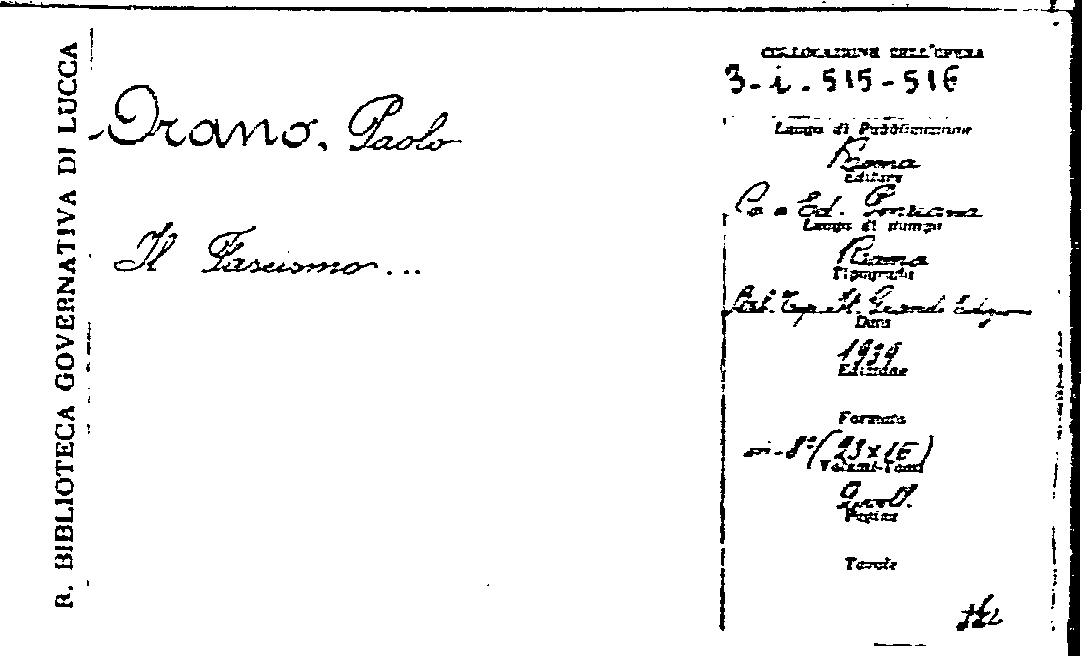 R. BIBLIOTECA GOVERNATIVA DI LUCCA
Orano, Paolo
Il Fascismo...
COLLOCAZIONE DELL'OPERA
3-i.515-516
Luogo di Pubblicazione
Roma
Editore
Ed. Pinciana
Luogo di stampa
Roma
Tipografia
Data
1939
Edizione
Formato
in-8°(23x16)
Volumi-Tomi
2 voll.
Pagine
Tavole